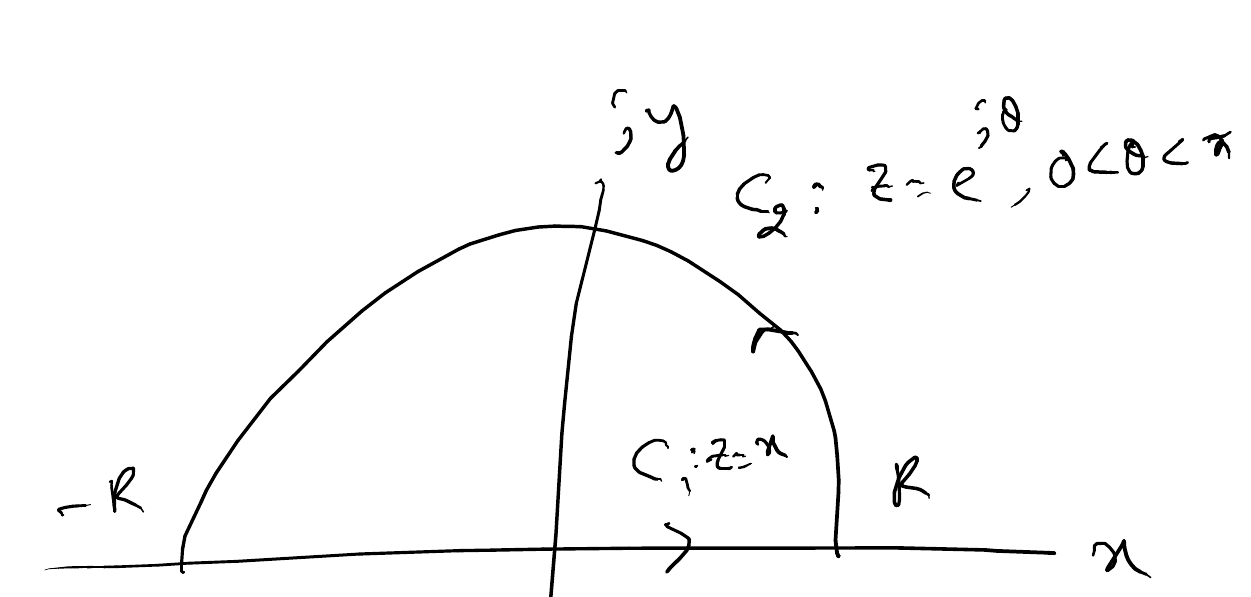 iy
C₂ : z = e^{iθ}, 0 < θ < π
C₁ : z = x
-R
R
x